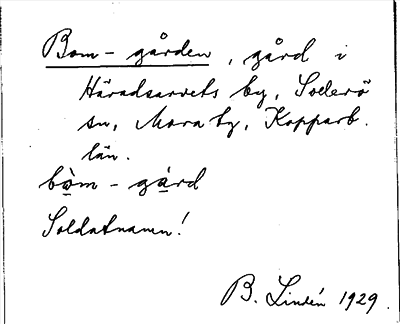 Bom-gården, gård i
Häradsarvets by, Soderö
sn, Mora tg, Kopparb.
län.
bȯ̱m-gå̱rd
Soldatnamn!
B. Lindén 1929.